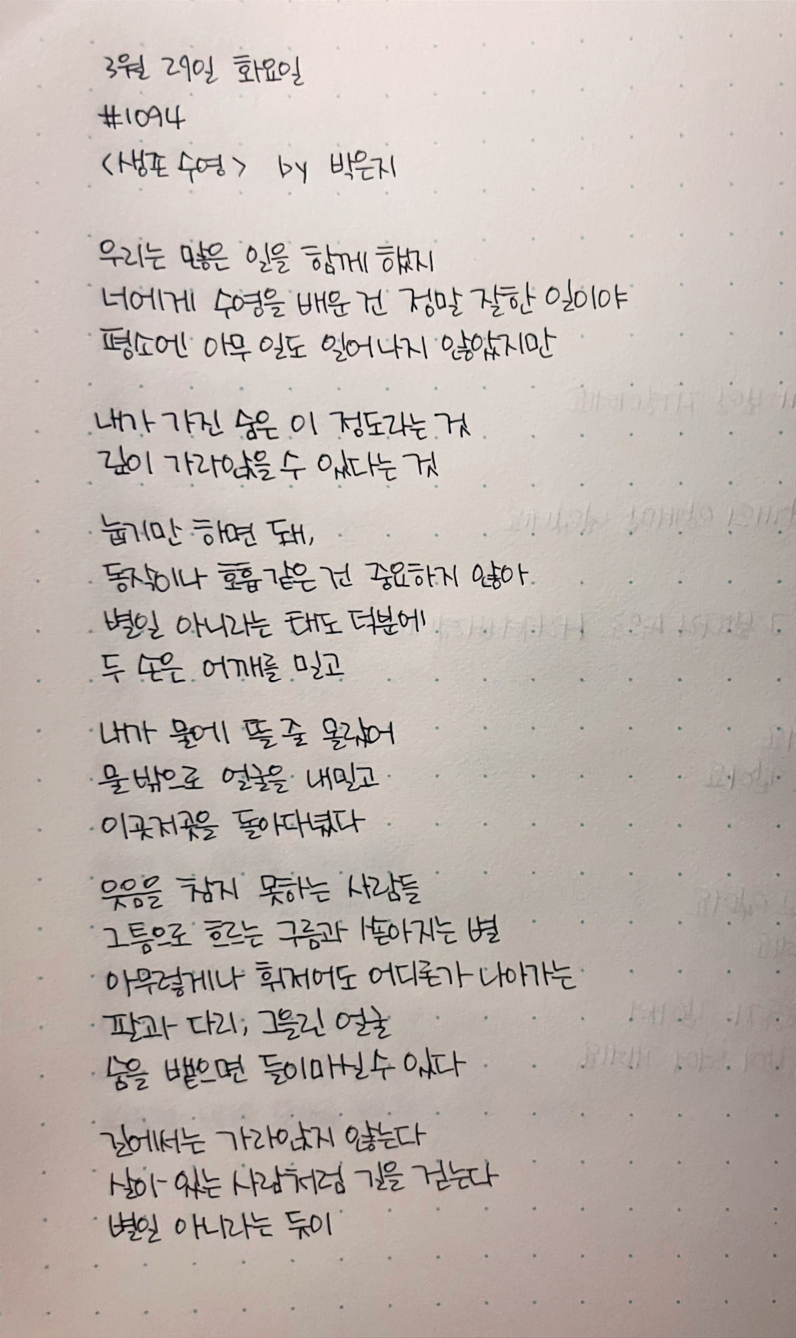 3월 29일 화요일
#1094
<생포 수영> by 박은지
우리는 많은 일을 함께 했지
너에게 수영을 배운 건 정말 잘한 일이야
평소엔 아무 일도 일어나지 않았지만
내가 가진 숨은 이 정도라는 것
깊이 가라앉을 수 있다는 것
눕기만 하면 돼,
동작이나 호흡같은 건 중요하지 않아
별일 아니라는 태도 덕분에
두 손은 어깨를 밀고
내가 물에 뜰 줄 몰랐어
물 밖으로 얼굴을 내밀고
이곳저곳을 돌아다녔다
웃음을 참지 못하는 사람들
그 틈으로 흐르는 구름과 쏟아지는 별
아무렇게나 휘저어도 어디론가 나아가는
팔과 다리, 그을린 얼굴
숨을 뱉으면 들이마실 수 있다
길에서는 가라앉지 않는다
살아 있는 사람처럼 길을 걷는다
별일 아니라는 듯이